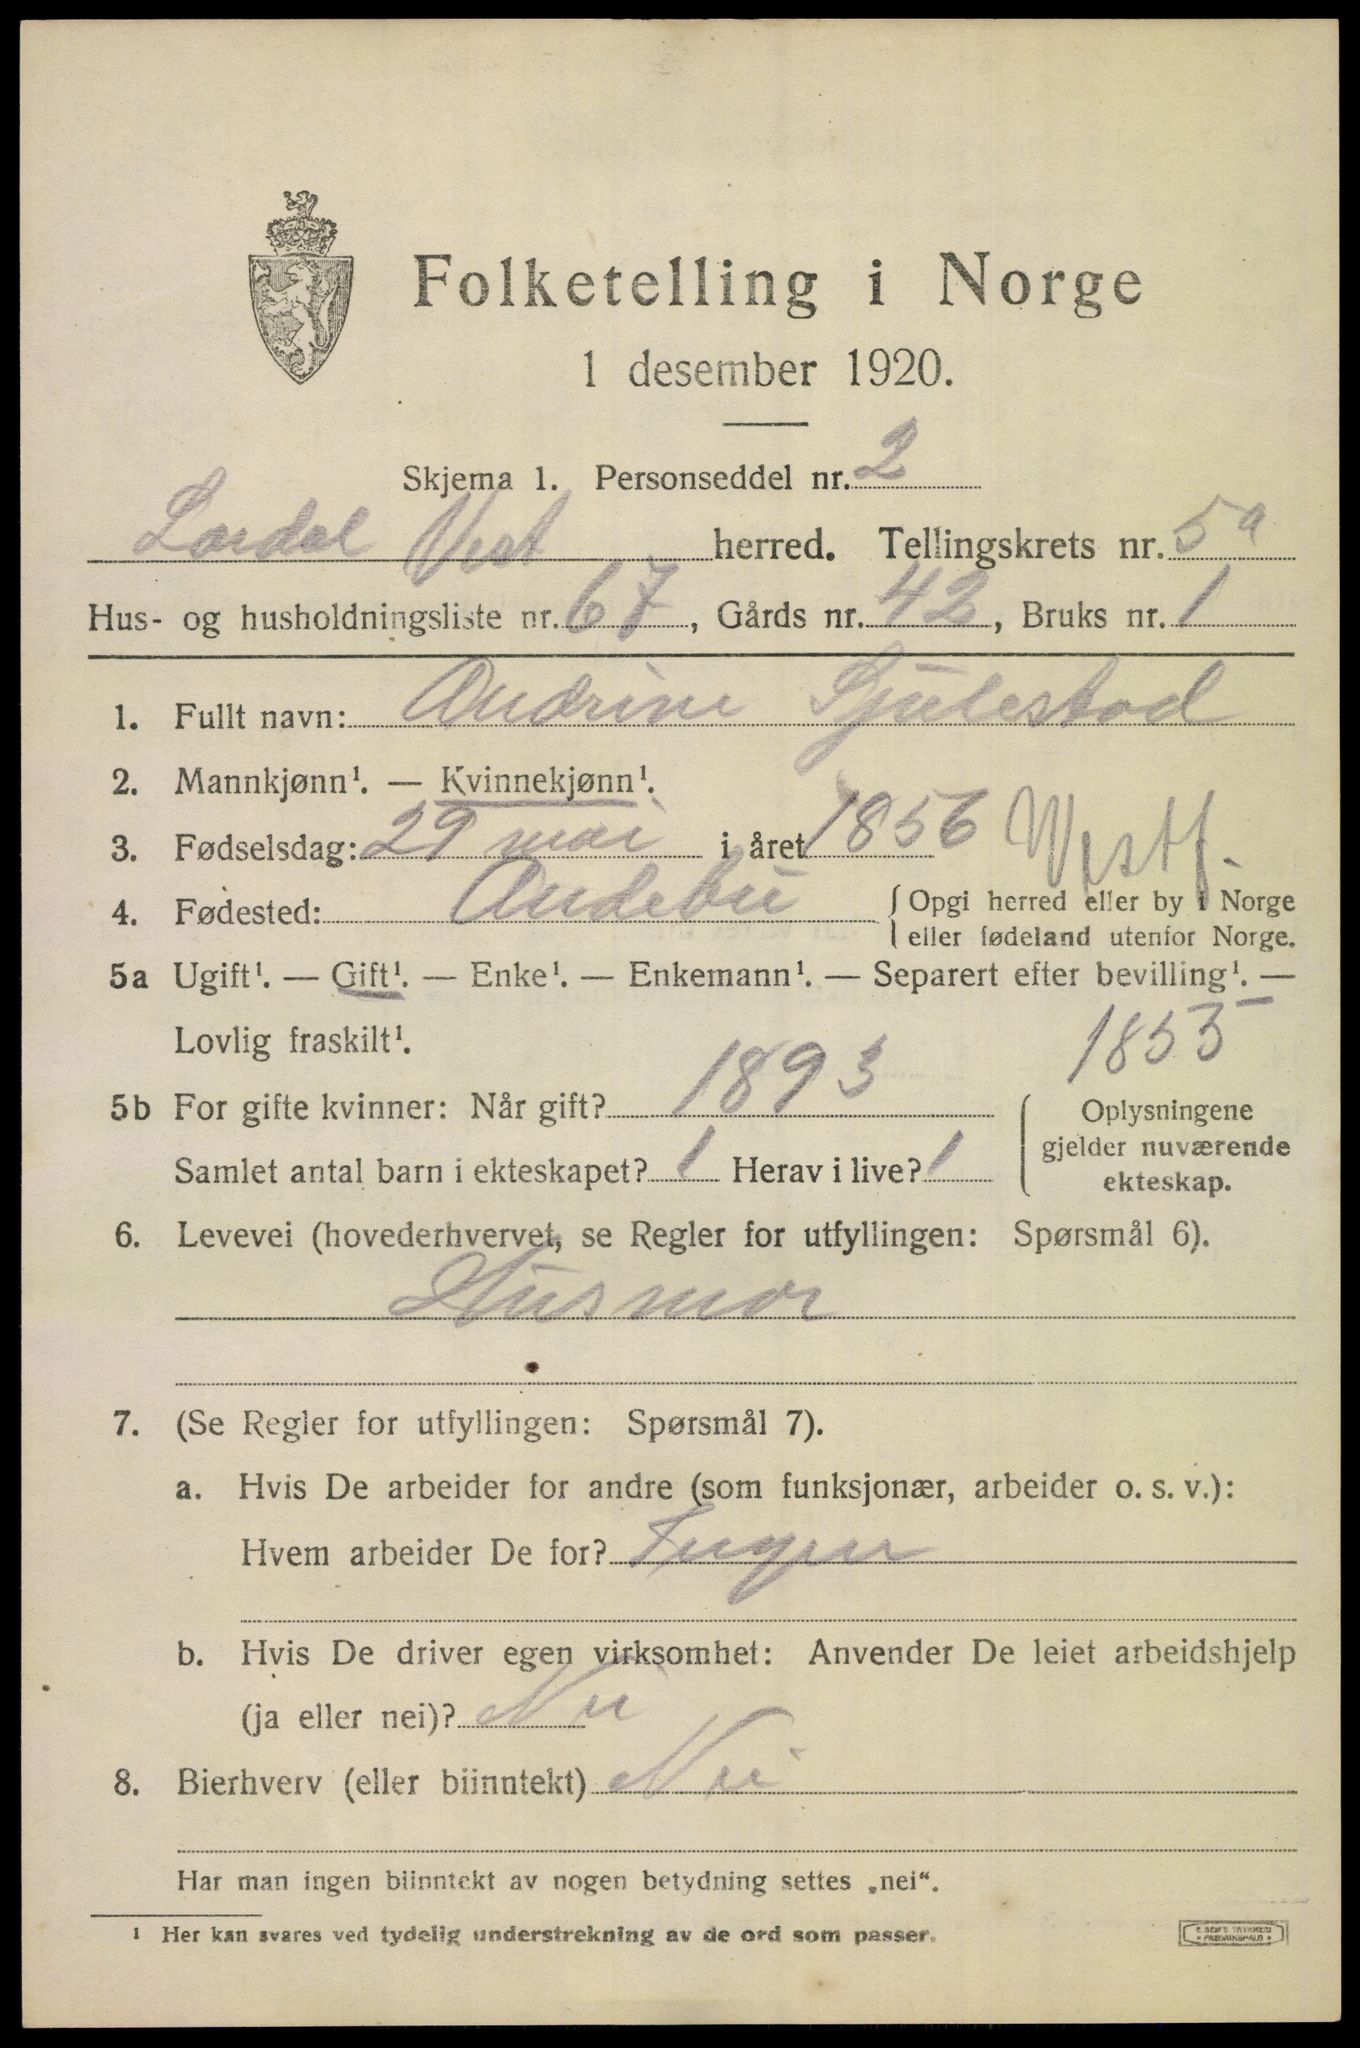 Folketelling i Norge
1 desember 1920.
Skjema 1. Personseddel nr. 2
Lardal Vest herred. Tellingskrets nr. 5a
Hus- og husholdningsliste nr. 67, Gårds nr. 42, Bruks nr. 1
1. Fullt navn: Andrine Sjulestad
2. Mannkjønn¹. — Kvinnekjønn¹.
3. Fødselsdag: 29 mai i året 1856 Vestf.
4. Fødested: Andebu { Opgi herred eller by i Norge
eller fødeland utenfor Norge.
5a Ugift¹. — Gift¹. — Enke¹. — Enkemann¹. — Separert efter bevilling¹. —
Lovlig fraskilt¹. 1855
5b For gifte kvinner: Når gift? 1893 { Oplysningene
gjelder nuværende
ekteskap.
Samlet antal barn i ekteskapet? 1 Herav i live? 1
6. Levevei (hovederhvervet, se Regler for utfyllingen: Spørsmål 6).
Husmor
7. (Se Regler for utfyllingen: Spørsmål 7).
a. Hvis De arbeider for andre (som funksjonær, arbeider o. s. v.):
Hvem arbeider De for? Ingen
b. Hvis De driver egen virksomhet: Anvender De leiet arbeidshjelp
(ja eller nei)? Nei
8. Bierhverv (eller biinntekt) Nei
Har man ingen biinntekt av nogen betydning settes „nei“.
¹ Her kan svares ved tydelig understrekning av de ord som passer.
FREDRIKSHALD